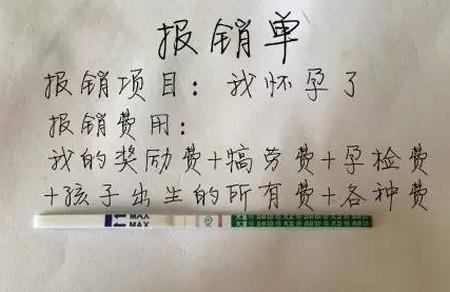 报销单
报销项目：我怀孕了
报销费用：
我的奖励费+犒劳费+孕检费
+孩子出生的所有费+各种费
MAX
MAX